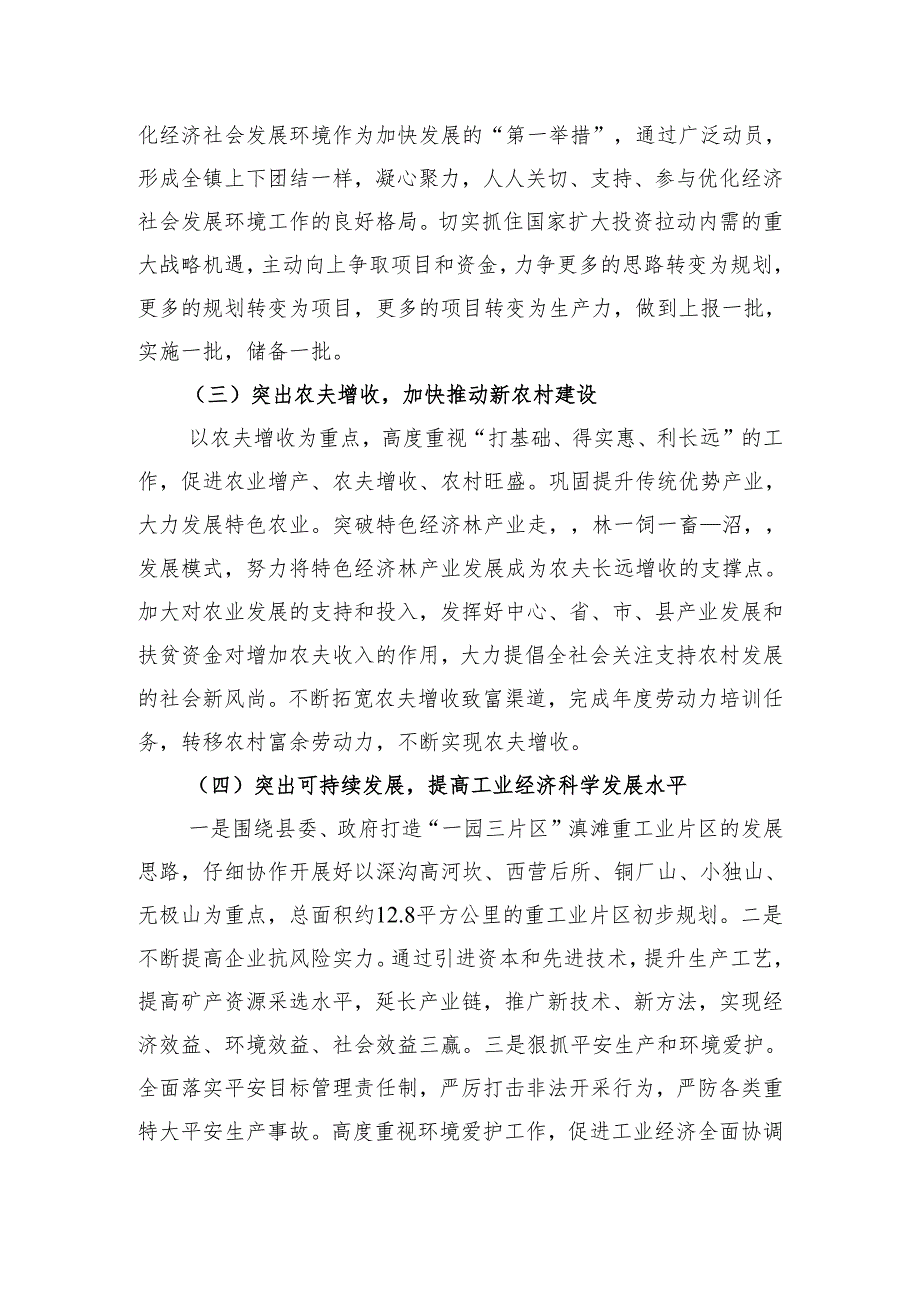 化经济社会发展环境作为加快发展的“第一举措”，通过广泛动员，
形成全镇上下团结一样，凝心聚力，人人关切、支持、参与优化经济
社会发展环境工作的良好格局。切实抓住国家扩大投资拉动内需的重
大战略机遇，主动向上争取项目和资金，力争更多的思路转变为规划，
更多的规划转变为项目，更多的项目转变为生产力，做到上报一批，
实施一批，储备一批。
（三）突出农夫增收，加快推动新农村建设
以农夫增收为重点，高度重视“打基础、得实惠、利长远”的工
作，促进农业增产、农夫增收、农村旺盛。巩固提升传统优势产业，
大力发展特色农业。突破特色经济林产业走，，林一饲一畜—沼，，
发展模式，努力将特色经济林产业发展成为农夫长远增收的支撑点。
加大对农业发展的支持和投入，发挥好中心、省、市、县产业发展和
扶贫资金对增加农夫收入的作用，大力提倡全社会关注支持农村发展
的社会新风尚。不断拓宽农夫增收致富渠道，完成年度劳动力培训任
务，转移农村富余劳动力，不断实现农夫增收。
（四）突出可持续发展，提高工业经济科学发展水平
一是围绕县委、政府打造“一园三片区”滇滩重工业片区的发展
思路，仔细协作开展好以深沟高河坎、西营后所、铜厂山、小独山、
无极山为重点，总面积约12.8平方公里的重工业片区初步规划。二是
不断提高企业抗风险实力。通过引进资本和先进技术，提升生产工艺，
提高矿产资源采选水平，延长产业链，推广新技术、新方法，实现经
济效益、环境效益、社会效益三赢。三是狠抓平安生产和环境爱护。
全面落实平安目标管理责任制，严厉打击非法开采行为，严防各类重
特大平安生产事故。高度重视环境爱护工作，促进工业经济全面协调